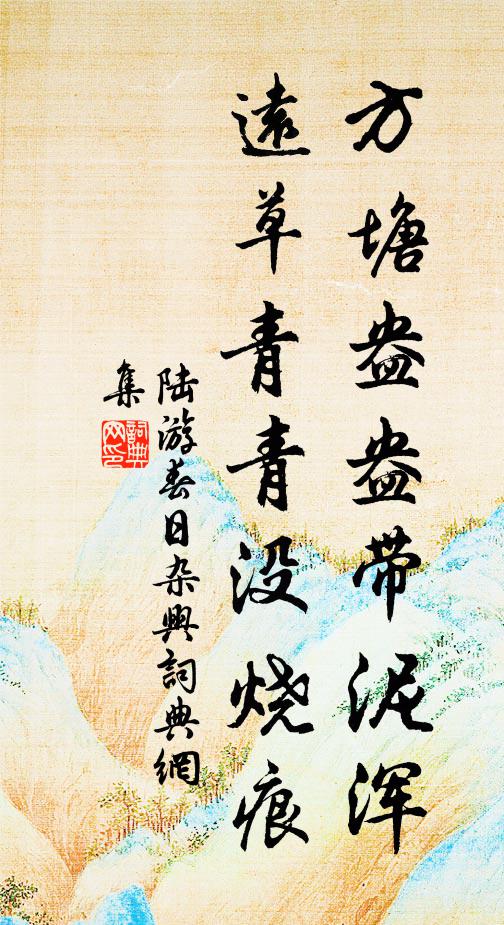 方塘盎盎带泥浑
遠草青青没烧痕
陆游春日杂興詞典網
集
詞典网印